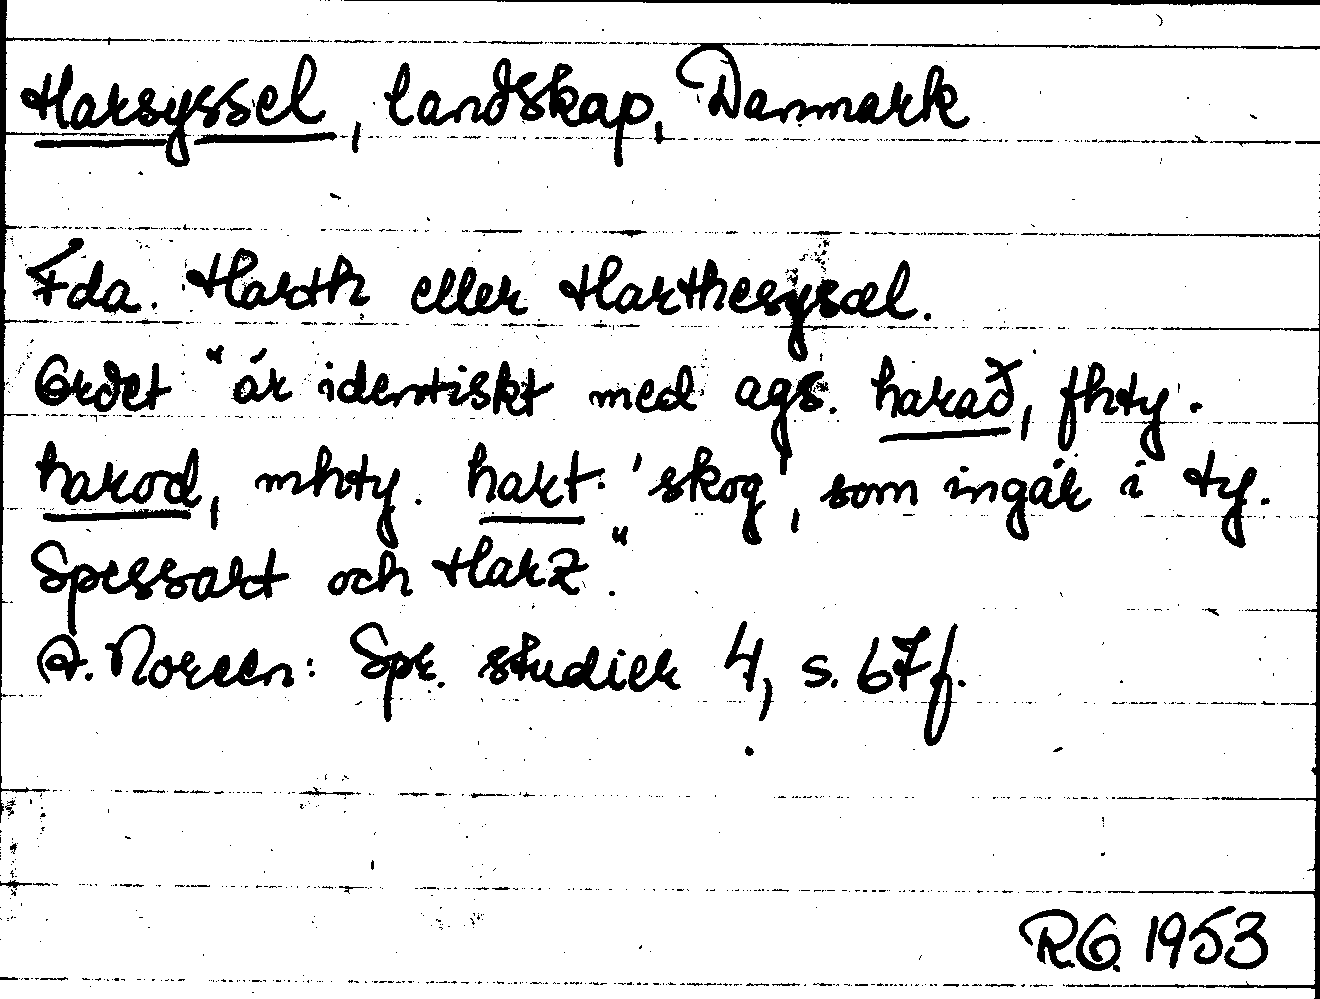 Harsyssel, landskap, Danmark
Fda. Harth eller Harthesysæl.
Ordet "är identiskt med ags. harað, fht​y.
harod, mhty. hart 'skog', som ingår i ty.
Spessart och Harz".
A. Noreen: Spr. studier 4, s. 67f.
R.G. 1953